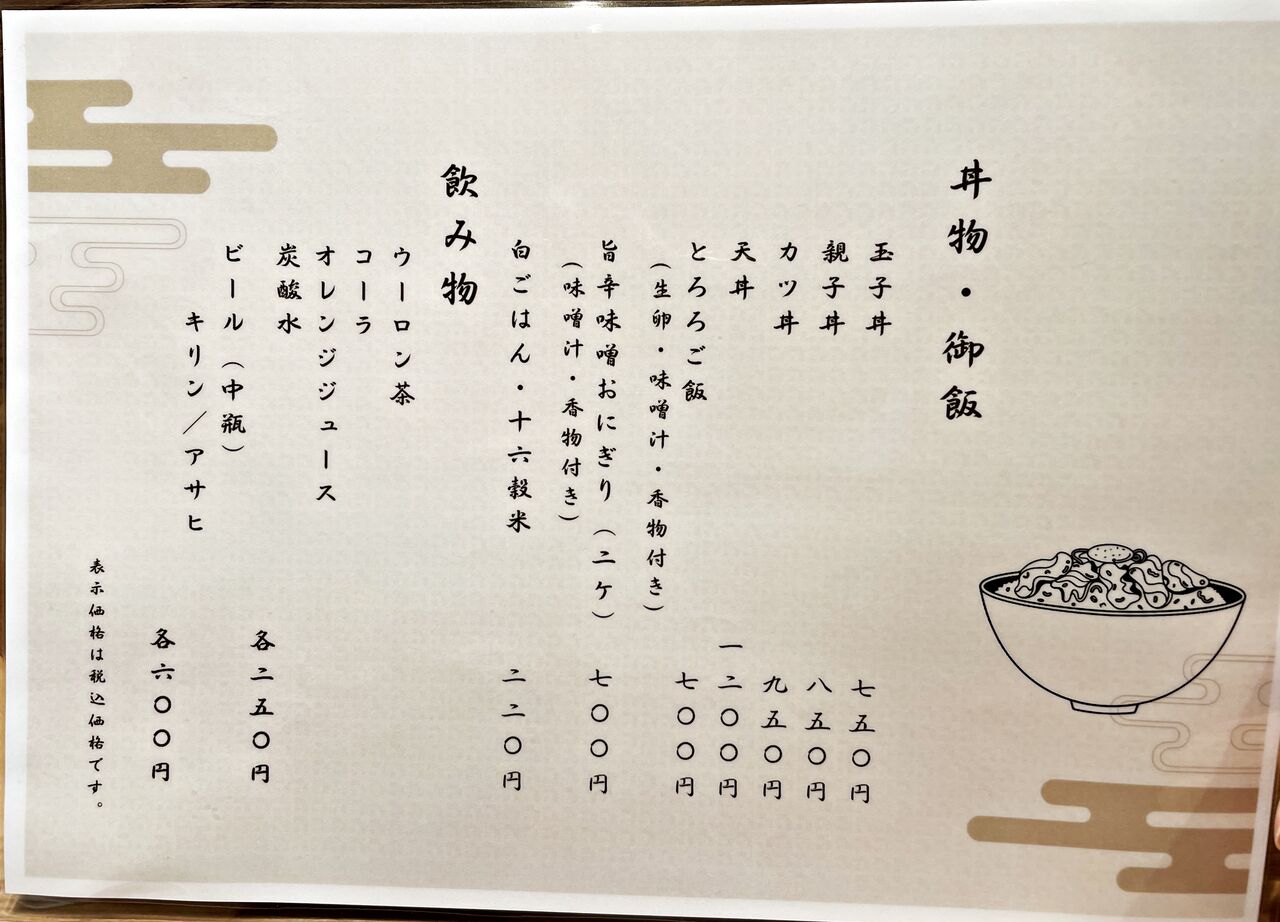 丼物・御飯
玉子丼 七五〇円
親子丼 八五〇円
カツ丼 九五〇円
天丼 一二〇〇円
とろろご飯 七〇〇円
（生卵・味噌汁・香物付き）
旨辛味噌おにぎり（二ケ） 七〇〇円
（味噌汁・香物付き）
白ごはん・十六穀米 二二〇円
飲み物
ウーロン茶
コーラ
オレンジジュース
炭酸水 各二五〇円
ビール（中瓶）
キリン／アサヒ 各六〇〇円
表示価格は税込価格です。